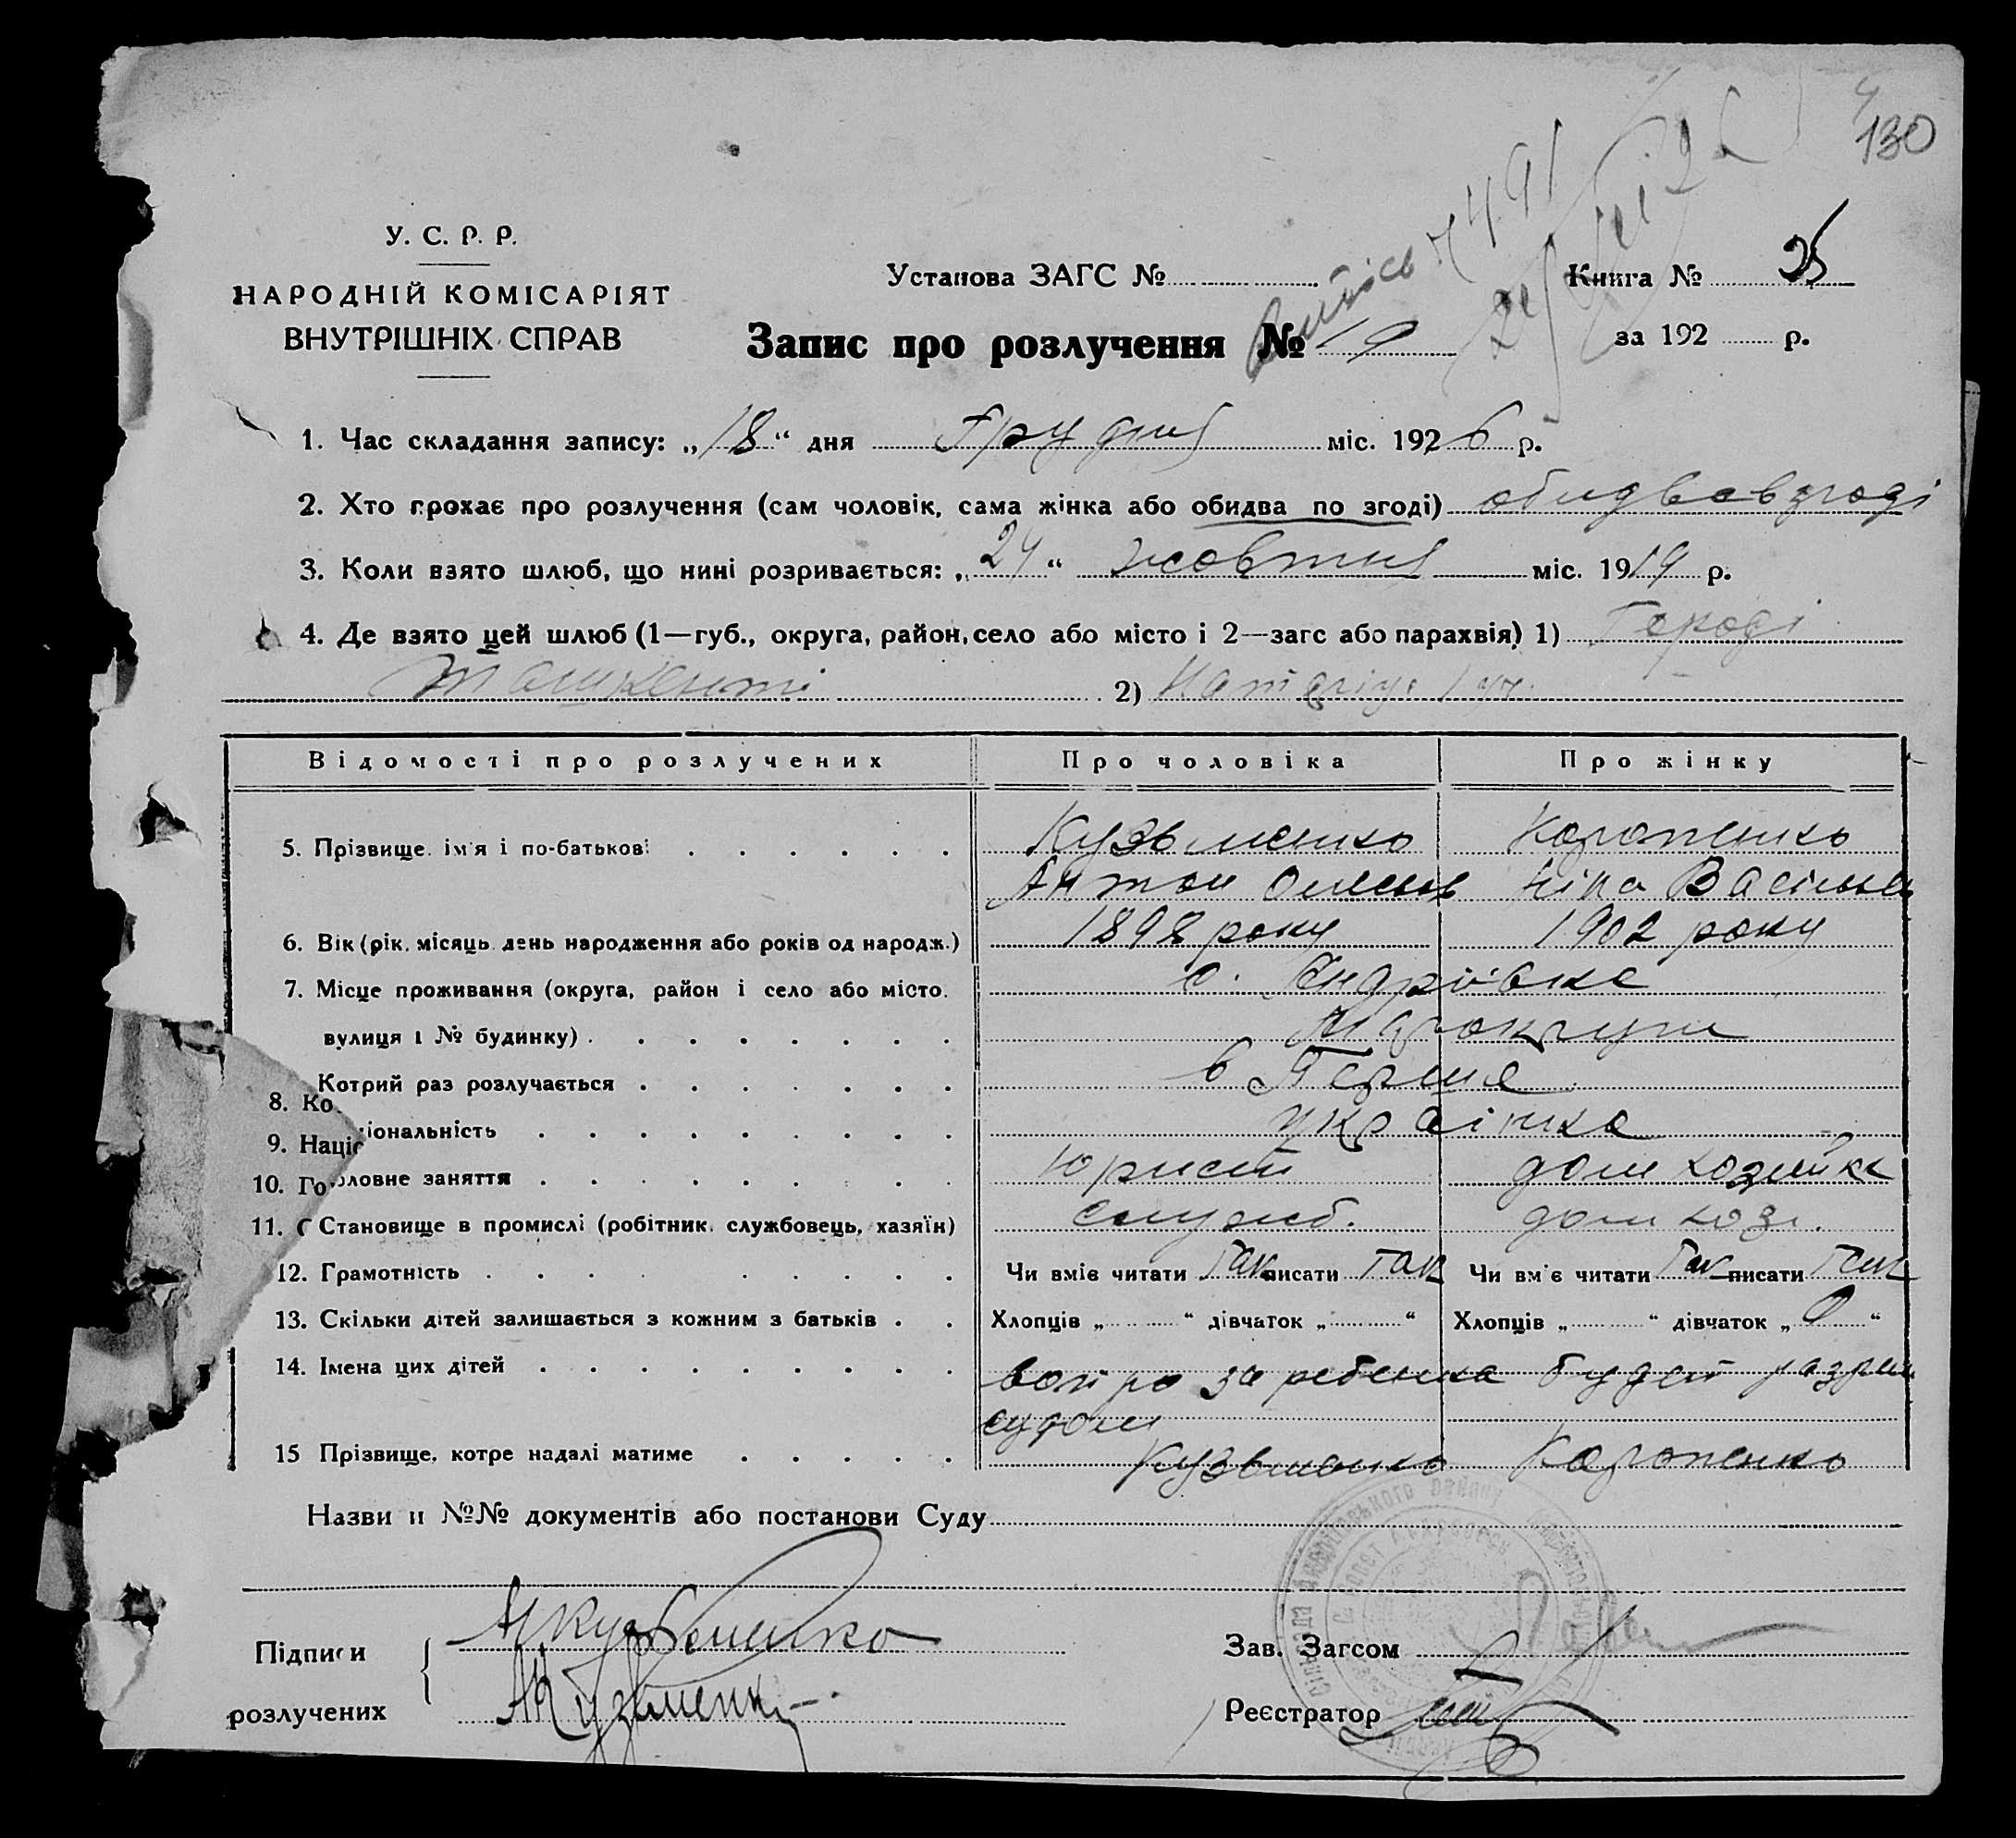 130
У. С. Р. Р.
НАРОДНІЙ КОМІСАРІЯТ
ВНУТРІШНІХ СПРАВ
Установа ЗАГС №
Книга № 25
Запис про розлучення № 19
за 192 р.
1. Час складання запису: „18“ дня Грудня міс. 1926 р.
2. Хто прохає про розлучення (сам чоловік, сама жінка або обидва по згоді) обидва в згоді
3. Коли взято шлюб, що нині розривається: „24“ жовтня міс. 1919 р.
4. Де взято цей шлюб (1—губ., округа, район, село або місто і 2—загс або парахвія) 1) Городі
Ташкенті 2) Натаріус 1 уч.
Відомості про розлучених Про чоловіка Про жінку
5. Прізвище, ім'я і по-батькові Кузьменко
Антон Ніна
6. Вік (рік, місяць, день народження або років од народж.) 1898 року 1902 року
7. Місце проживання (округа, район і село або місто, с. Андріівка
вулиця і № будинку)
Котрий раз розлучається в Перше
8. Ко
9. Націо
ціональність украінка
10. Го оловне заняття юрист дом хозяйка
11. С Становище в промислі (робітник, службовець, хазяїн) служб. дом хоз.
12. Грамотність Чи вміє читати Так писати Так Чи вміє читати Так писати Так
13. Скільки дітей залишається з кожним з батьків Хлопців „ “ дівчаток „ “ Хлопців „ “ дівчаток „ 0 “
14. Імена цих дітей вопро за ребенка будет разреш
судом
15 Прізвище, котре надалі матиме Кузьменко
Назви и №№ документів або постанови Суду
Підписи
розлучених
АКузьменко
Зав. Загсом
Реєстратор